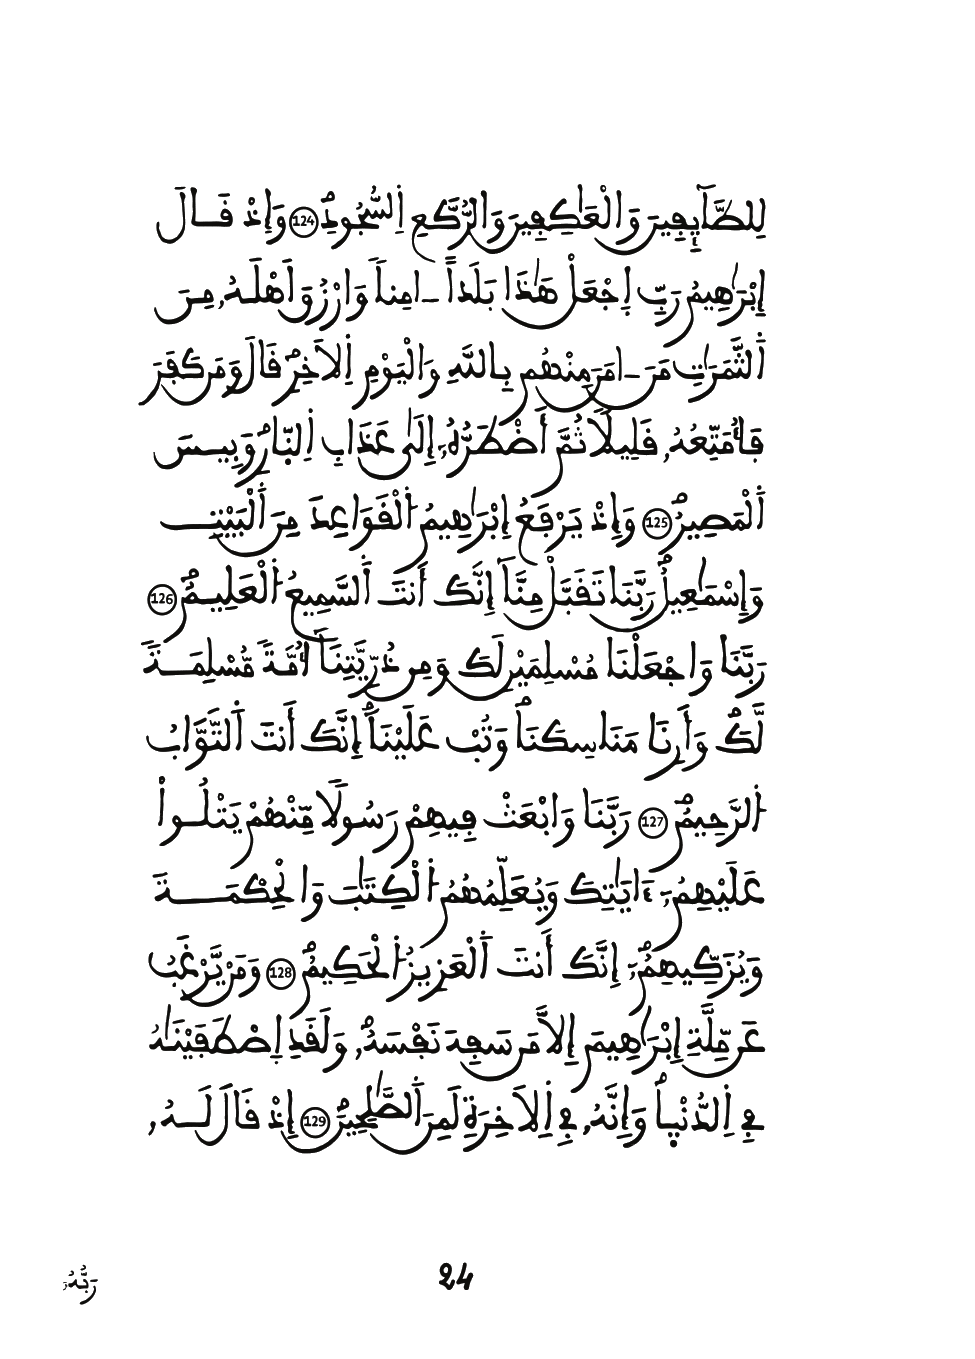 لِلطَّآئِفِينَ وَالْعَٰكِفِينَ وَالرُّكَّعِ اِ۬لسُّجُودِۖ 124 وَإِذْ قَالَ
إِبْرَٰهِيمُ رَبِّ اِ۪جْعَلْ هَٰذَا بَلَداً ءَامِناً وَارْزُقَ اَهْلَهُۥ مِنَ
اَ۬لثَّمَرَٰتِ مَنَ ءَامَنَ مِنْهُم بِاللَّهِ وَالْيَوْمِ اِ۬لَاخِرِۖ قَالَ وَمَن كَفَرَ
فَأُمَتِّعُهُۥ قَلِيلًا ثُمَّ أَضْطَرُّهُۥٓ إِلَىٰ عَذَابِ اِ۬لنّ۪ارِۖ وَبِيسَ
اَ۬لْمَصِيرُۖ 125 وَإِذْ يَرْفَعُ إِبْرَٰهِيمُ اُ۬لْقَوَاعِدَ مِنَ اَ۬لْبَيْتِ
وَإِسْمَٰعِيلُۖ رَبَّنَا تَقَبَّلْ مِنَّآ إِنَّكَ أَنتَ اَ۬لسَّمِيعُ اُ۬لْعَلِيمُۖ 126
رَبَّنَا وَاجْعَلْنَا مُسْلِمَيْنِ لَكَ وَمِن ذُرِّيَّتِنَآ أُمَّةً مُّسْلِمَةً
لَّكَۖ وَأَرِنَا مَنَاسِكَنَاۖ وَتُبْ عَلَيْنَآۖ إِنَّكَ أَنتَ اَ۬لتَّوَّابُ
اُ۬لرَّحِيمُۖ 127 رَبَّنَا وَابْعَثْ فِيهِمْ رَسُولًا مِّنْهُمْ يَتْلُواْ
عَلَيْهِمُۥٓ ءَايَٰتِكَ وَيُعَلِّمُهُمُ اُ۬لْكِتَٰبَ وَالْحِكْمَةَ
وَيُزَكِّيهِمُۥٓۖ إِنَّكَ أَنتَ اَ۬لْعَزِيزُ اُ۬لْحَكِيمُۖ 128 وَمَنْ يَّرْغَبُ
عَن مِّلَّةِ إِبْرَٰهِيمَ إِلَّا مَن سَفِهَ نَفْسَهُۥۖ وَلَقَدِ اِ۪صْطَفَيْنَٰهُ
فِي اِ۬لدُّنْي۪اۖ وَإِنَّهُۥ فِي اِ۬لَاخِرَةِ لَمِنَ اَ۬لصَّٰلِحِينَۖ 129 إِذْ قَالَ لَهُۥ
رَبُّهُۥٓ
24